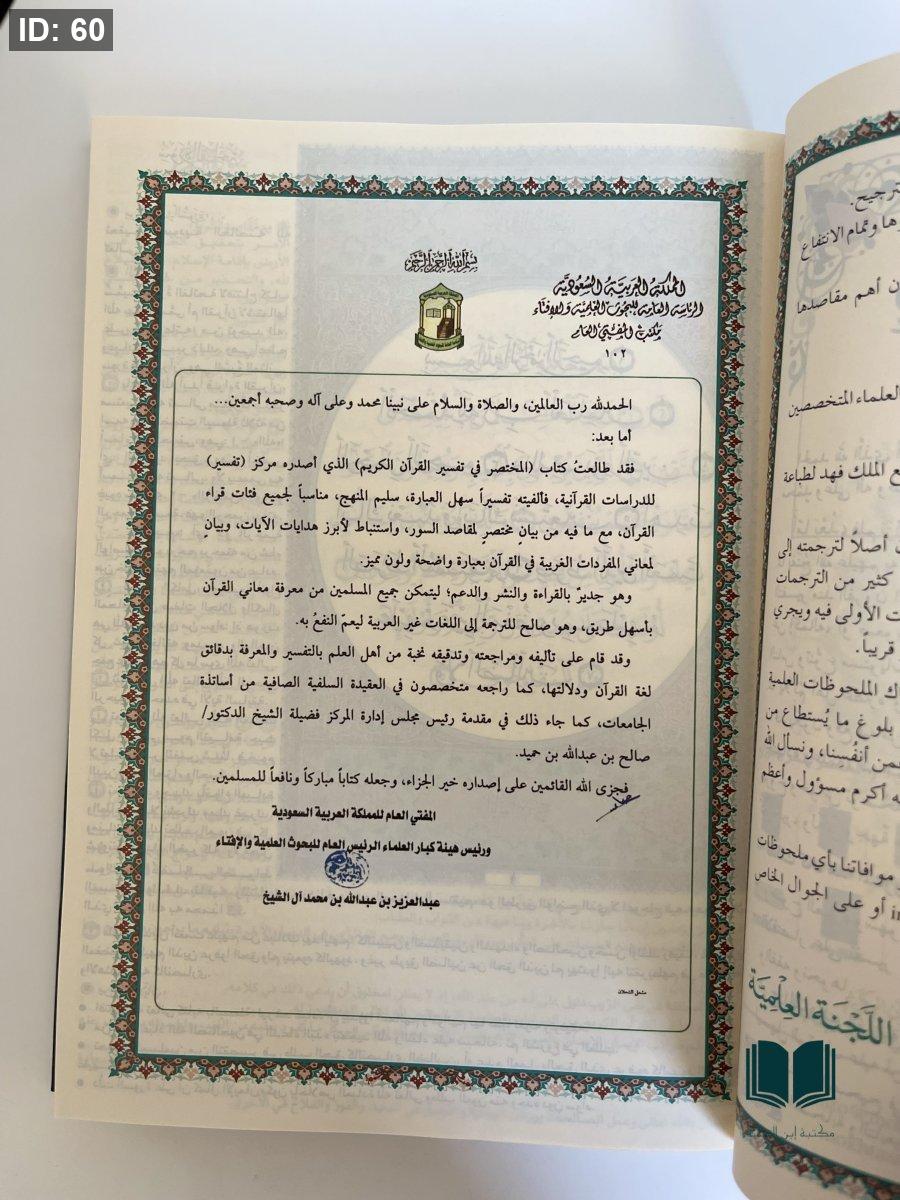 ID: 60
بسم الله الرحمن الرحيم
المملكة العربية السعودية
الرئاسة العامة للبحوث العلمية والإفتاء
مكتب المفتي العام
١٠٢
الحمدلله رب العالمين، والصلاة والسلام على نبينا محمد وعلى آله وصحبه أجمعين...
أما بعد:
فقد طالعتُ كتاب (المختصر في تفسير القرآن الكريم) الذي أصدره مركز (تفسير)
للدراسات القرآنية، فألفيته تفسيراً سهل العبارة، سليم المنهج، مناسباً لجميع فئات قراء
القرآن، مع ما فيه من بيانٍ مختصرٍ لمقاصد السور، واستنباط لأبرز هدايات الآيات، وبيانٍ
لمعاني المفردات الغريبة في القرآن بعبارة واضحة ولون مميز.
وهو جديرٌ بالقراءة والنشر والدعم؛ ليتمكن جميع المسلمين من معرفة معاني القرآن
بأسهل طريق، وهو صالح للترجمة إلى اللغات غير العربية ليعمّ النفعُ به.
وقد قام على تأليفه ومراجعته وتدقيقه نخبة من أهل العلم بالتفسير والمعرفة بدقائق
لغة القرآن ودلالتها، كما راجعه متخصصون في العقيدة السلفية الصافية من أساتذة
الجامعات، كما جاء ذلك في مقدمة رئيس مجلس إدارة المركز فضيلة الشيخ الدكتور/
صالح بن عبدالله بن حميد.
فجزى الله القائمين على إصداره خير الجزاء، وجعله كتاباً مباركاً ونافعاً للمسلمين.
المفتي العام للمملكة العربية السعودية
ورئيس هيئة كبار العلماء الرئيس العام للبحوث العلمية والإفتاء
عبدالعزيز بن عبدالله بن محمد آل الشيخ
مشعل الشعلان
ترجيح.
وتمام الانتفاع
أهم مقاصدها
العلماء المتخصصين
الملك فهد لطباعة
أصلاً لترجمته إلى
كثير من الترجمات
الأولى فيه ويجري
قريباً.
الملحوظات العلمية
بلوغ ما يُستطاع من
أنفُسِنا، ونسأل الله
أكرم مسؤول وأعظم
موافاتنا بأي ملحوظات
أو على الجوال الخاص
اللَّجنَة العِلميَّة
مكتبة إبن